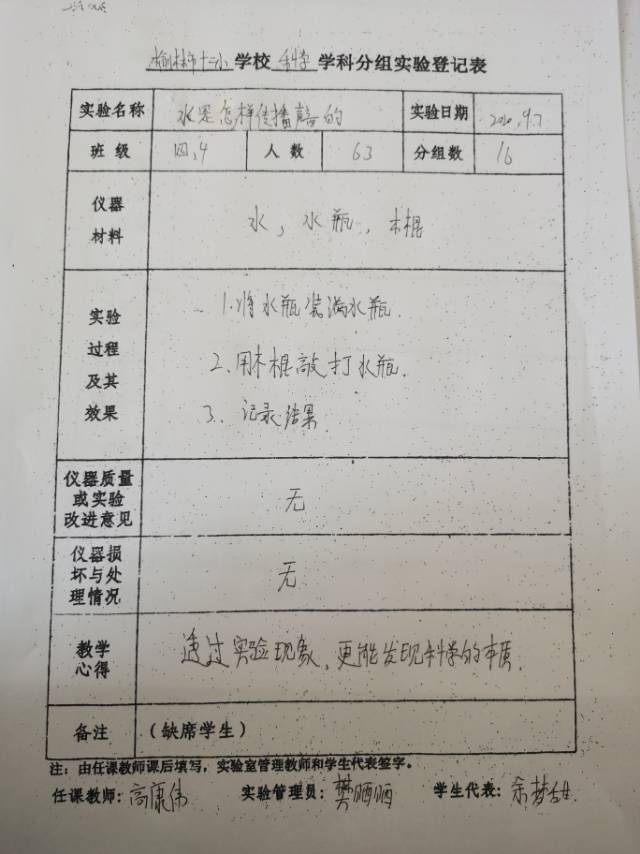 榆林市十二小学校科学学科分组实验登记表
实验名称 水是怎样传播声音的 实验日期 2020.9.7
班级 四.4 人数 63 分组数 16
仪器
材料
水，水瓶，木棍
实验
过程
及其
效果
1.将水瓶装满水瓶.
2.用木棍敲打水瓶.
3.记录结果.
仪器质量
或实验
改进意见
无
仪器损
坏与处
理情况
无
教学
心得
透过实验现象，更能发现科学的本质.
备注 （缺席学生）
注：由任课教师课后填写，实验室管理教师和学生代表签字。
任课教师：高康伟 实验管理员：樊晒晒 学生代表：余梦甜